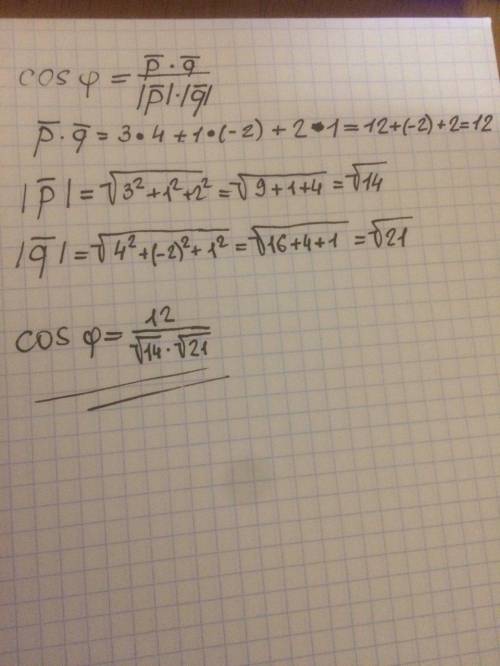 cos φ = p̅ · q̅ / |p̅| · |q̅|
p̅ · q̅ = 3 · 4 + 1 · (-2) + 2 · 1 = 12 + (-2) + 2 = 12
|p̅| = √(3² + 1² + 2²) = √(9 + 1 + 4) = √14
|q̅| = √(4² + (-2)² + 1²) = √(16 + 4 + 1) = √21
cos φ = 12 / √14 · √21